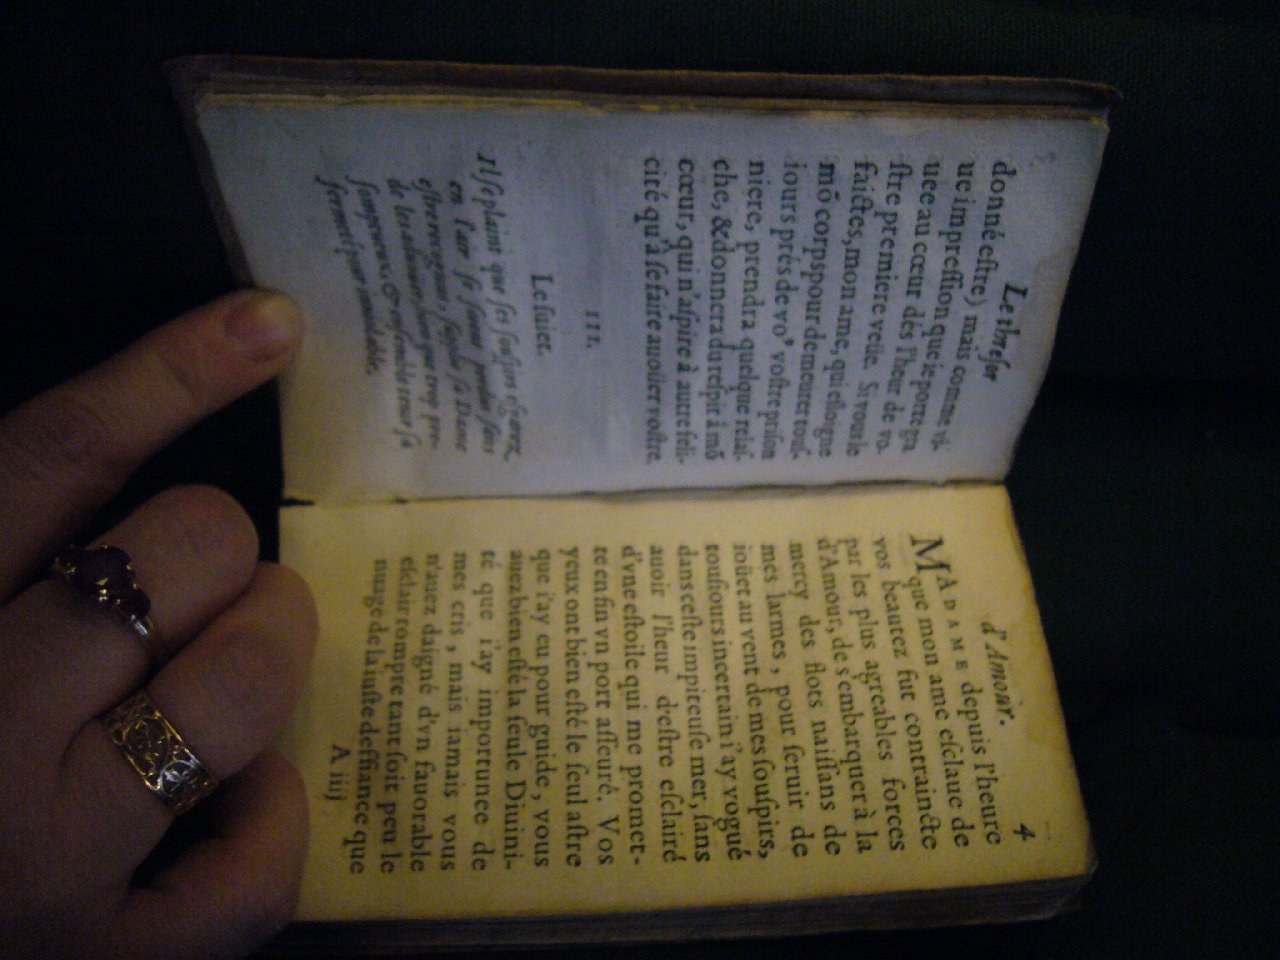 Le thresor
donné estre) mais comme vi-
ue impression que ie porte gra
uee au cœur dés l'heur de vo-
stre premiere veuë. Si vous le
faictes, mon ame, qui esloigne
mõ corps pour demeurer tous-
iours prés de vo⁹ vostre prison
niere, prendra quelque relas-
che, & donnera du respir à mõ
cœur, qui n'aspire à autre feli-
cité qu'à se faire auoüer vostre.
III.
Le suiet.
Il se plaint que ses souspirs esgarez,
en l'air se sont perdus sans
estre recogneus, supplie sa Dame
de les
songneux, & ensemble tenir sa
fermeté pour immuable.
d'Amour. 4
MADAME depuis l'heure
que mon ame esclaue de
vos beautez fut contraincte
par les plus agreables forces
d'Amour, de s'embarquer à la
mercy des flots naissans de
mes larmes, pour seruir de
ioüet au vent de mes souspirs,
tousiours incertain i'ay vogué
dans ceste impiteuse mer, sans
auoir l'heur d'estre esclairé
d'vne estoile qui me promet-
te enfin vn port asseuré. Vos
yeux ont bien esté le seul astre
que i'ay eu pour guide, vous
auez bien esté la seule Diuini-
té que i'ay importunee de
mes cris, mais iamais vous
n'auez daigné d'vn fauorable
esclair rompre tant soit peu le
nuage de la iuste deffiance que
A iiij